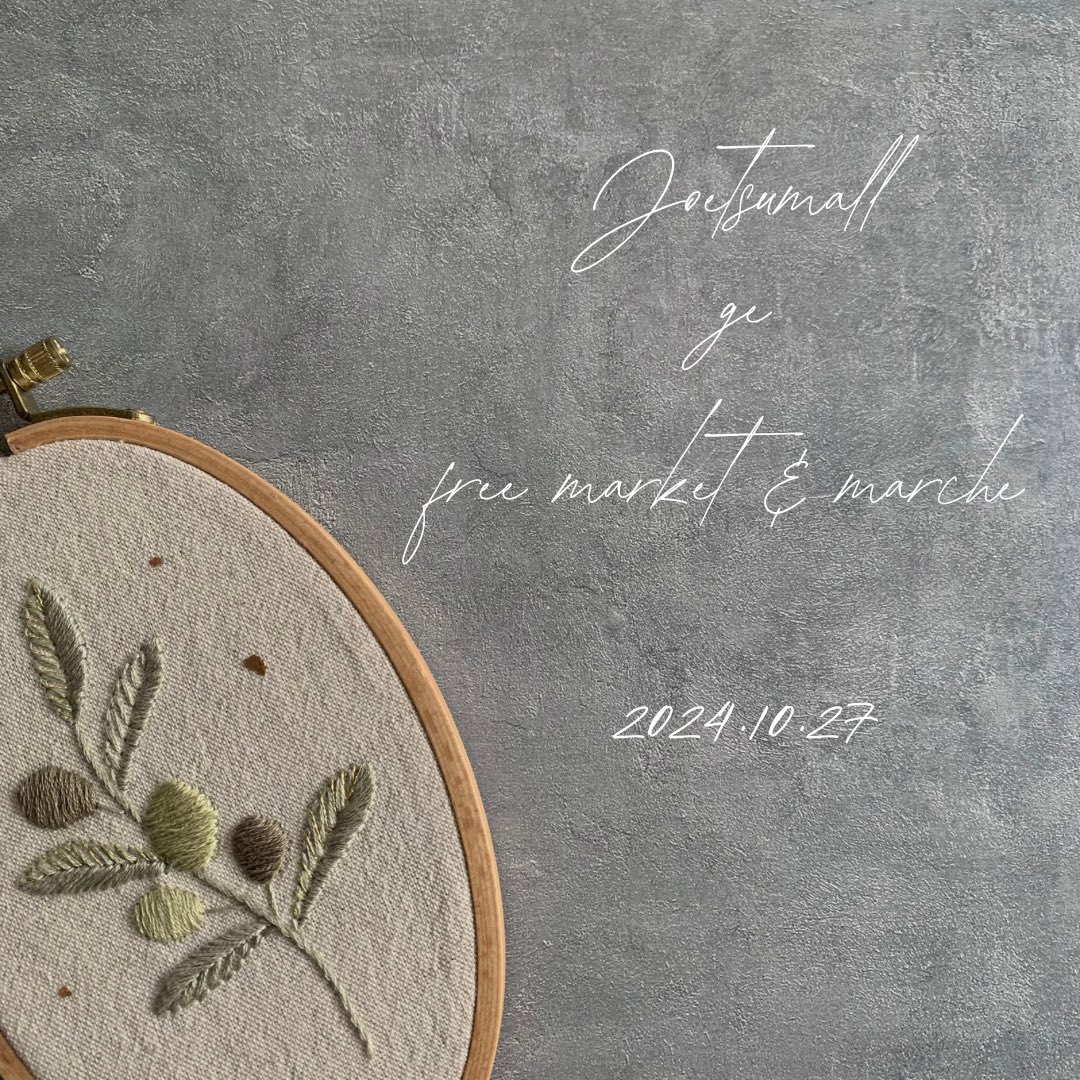 Joetsumall
ge
free market & marche
2024.10.27